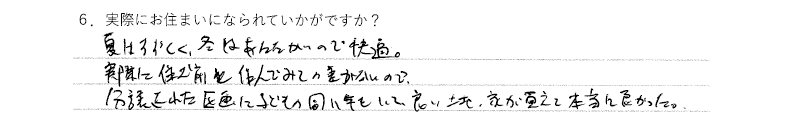 6. 実際にお住まいになられていかがですか？
夏はすずしく、冬はあたたかいので快適。
実際に住む前と住んでみての差がないので、
分譲された区画に子どもの同い年もいて良い土地、家が買えて本当に良かった。